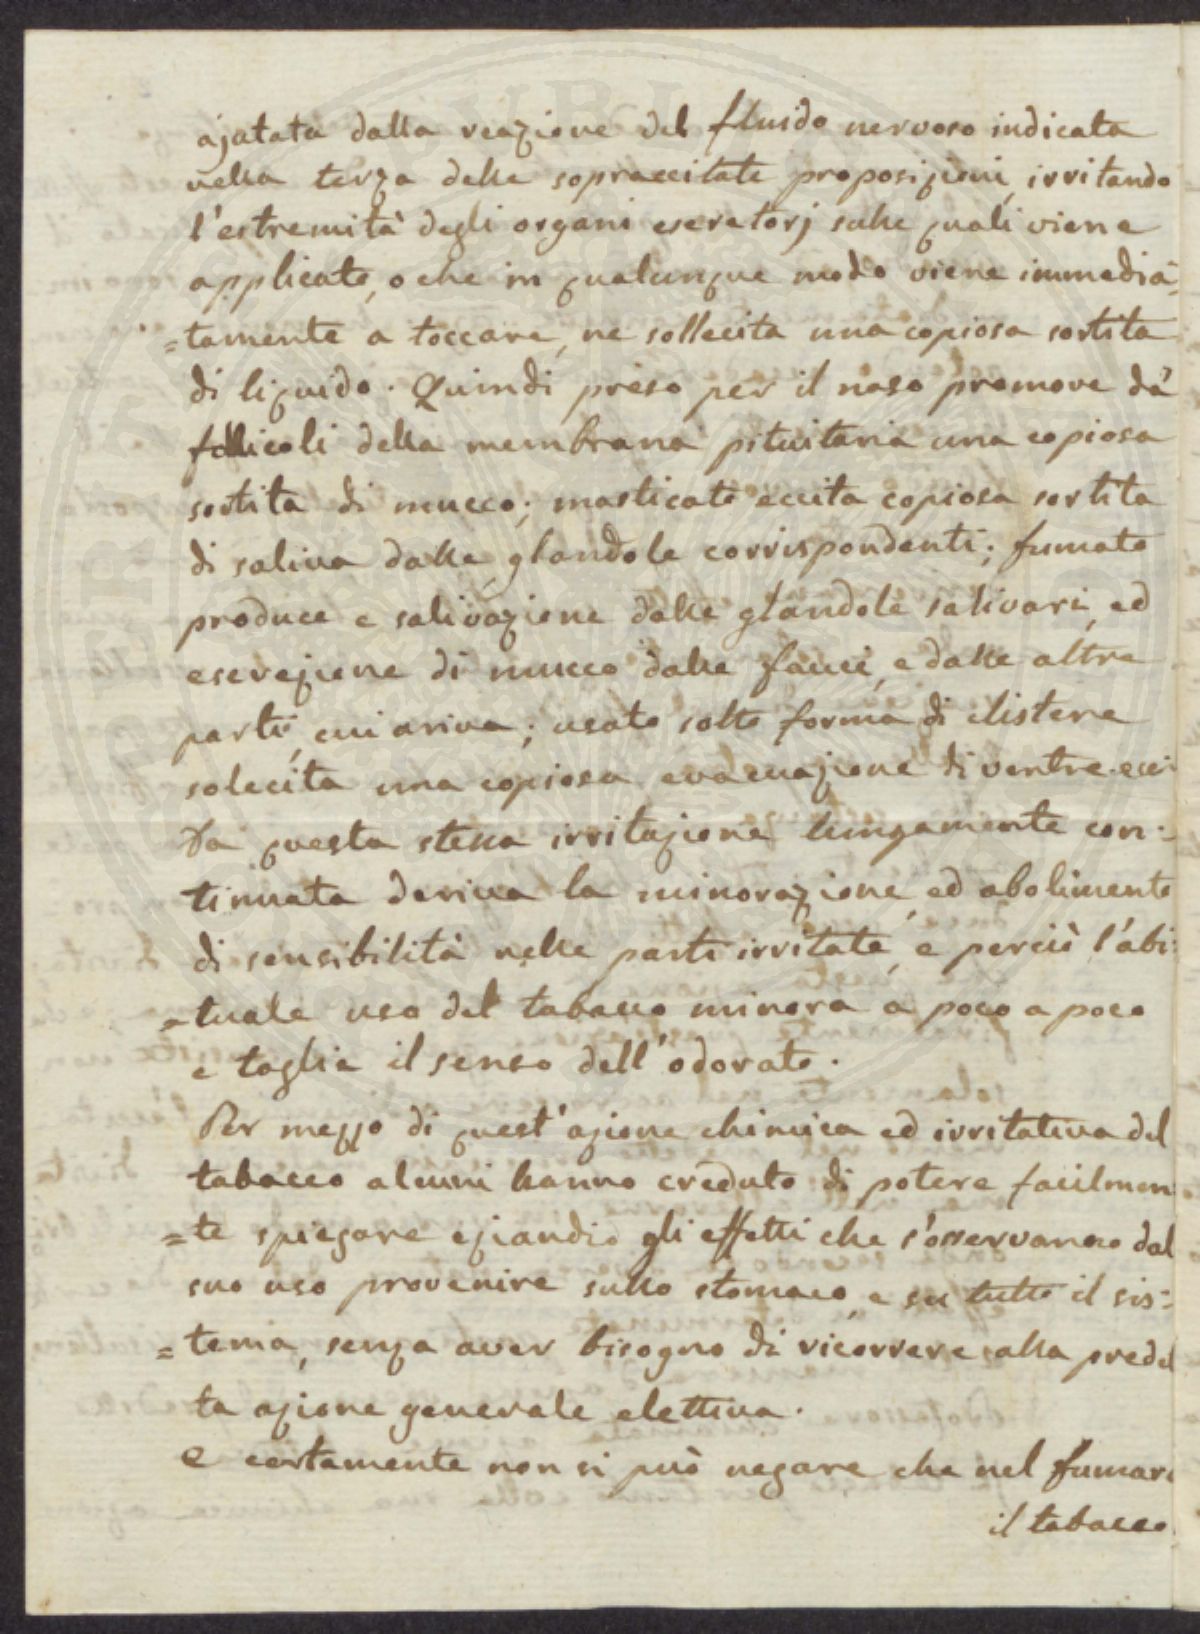 ajutata dalla reazione del fluido nervoso indicata
nella terza delle sopraccitate proposizioni, irritando
l'estremità degli organi escretorj sulle quali viene
applicato, o che in qualunque modo viene immedia=
=tamente a toccare, ne sollecita una copiosa sortita
di liquido. Quindi preso per il naso promove da'
follicoli della membrana pituitaria una copiosa
sortita di mucco; masticato eccita copiosa sortita
di saliva dalle glandole corrispondenti; fumato
produce e salivazione dalle glandole salivari, ed
escrezione di mucco dalle fauci, e dalle altre
parti, cui ariva; usato sotto forma di clistere
solecita una copiosa evacuazione di ventre.
Da questa stessa irritazione lungamente con=
tinuata deriva la minorazione, ed abolimento
di sensibilità nelle parti irritate, e perciò l'abi=
=tuale uso del tabacco minora a poco a poco
e toglie il senso dell'odorato.
Per mezzo di quest'azione chimica ed irritativa del
tabacco alcuni hanno creduto di potere facilmen
=te spiegare eziandio gli effetti che s'osservanno dal
suo uso provenire sullo stomaco, e su tutto il sis=
=tema, senza aver bisogno di ricorrere alla predet
ta azione generale elettiva.
E certamente non si può negare che nel fumare
il tabacco